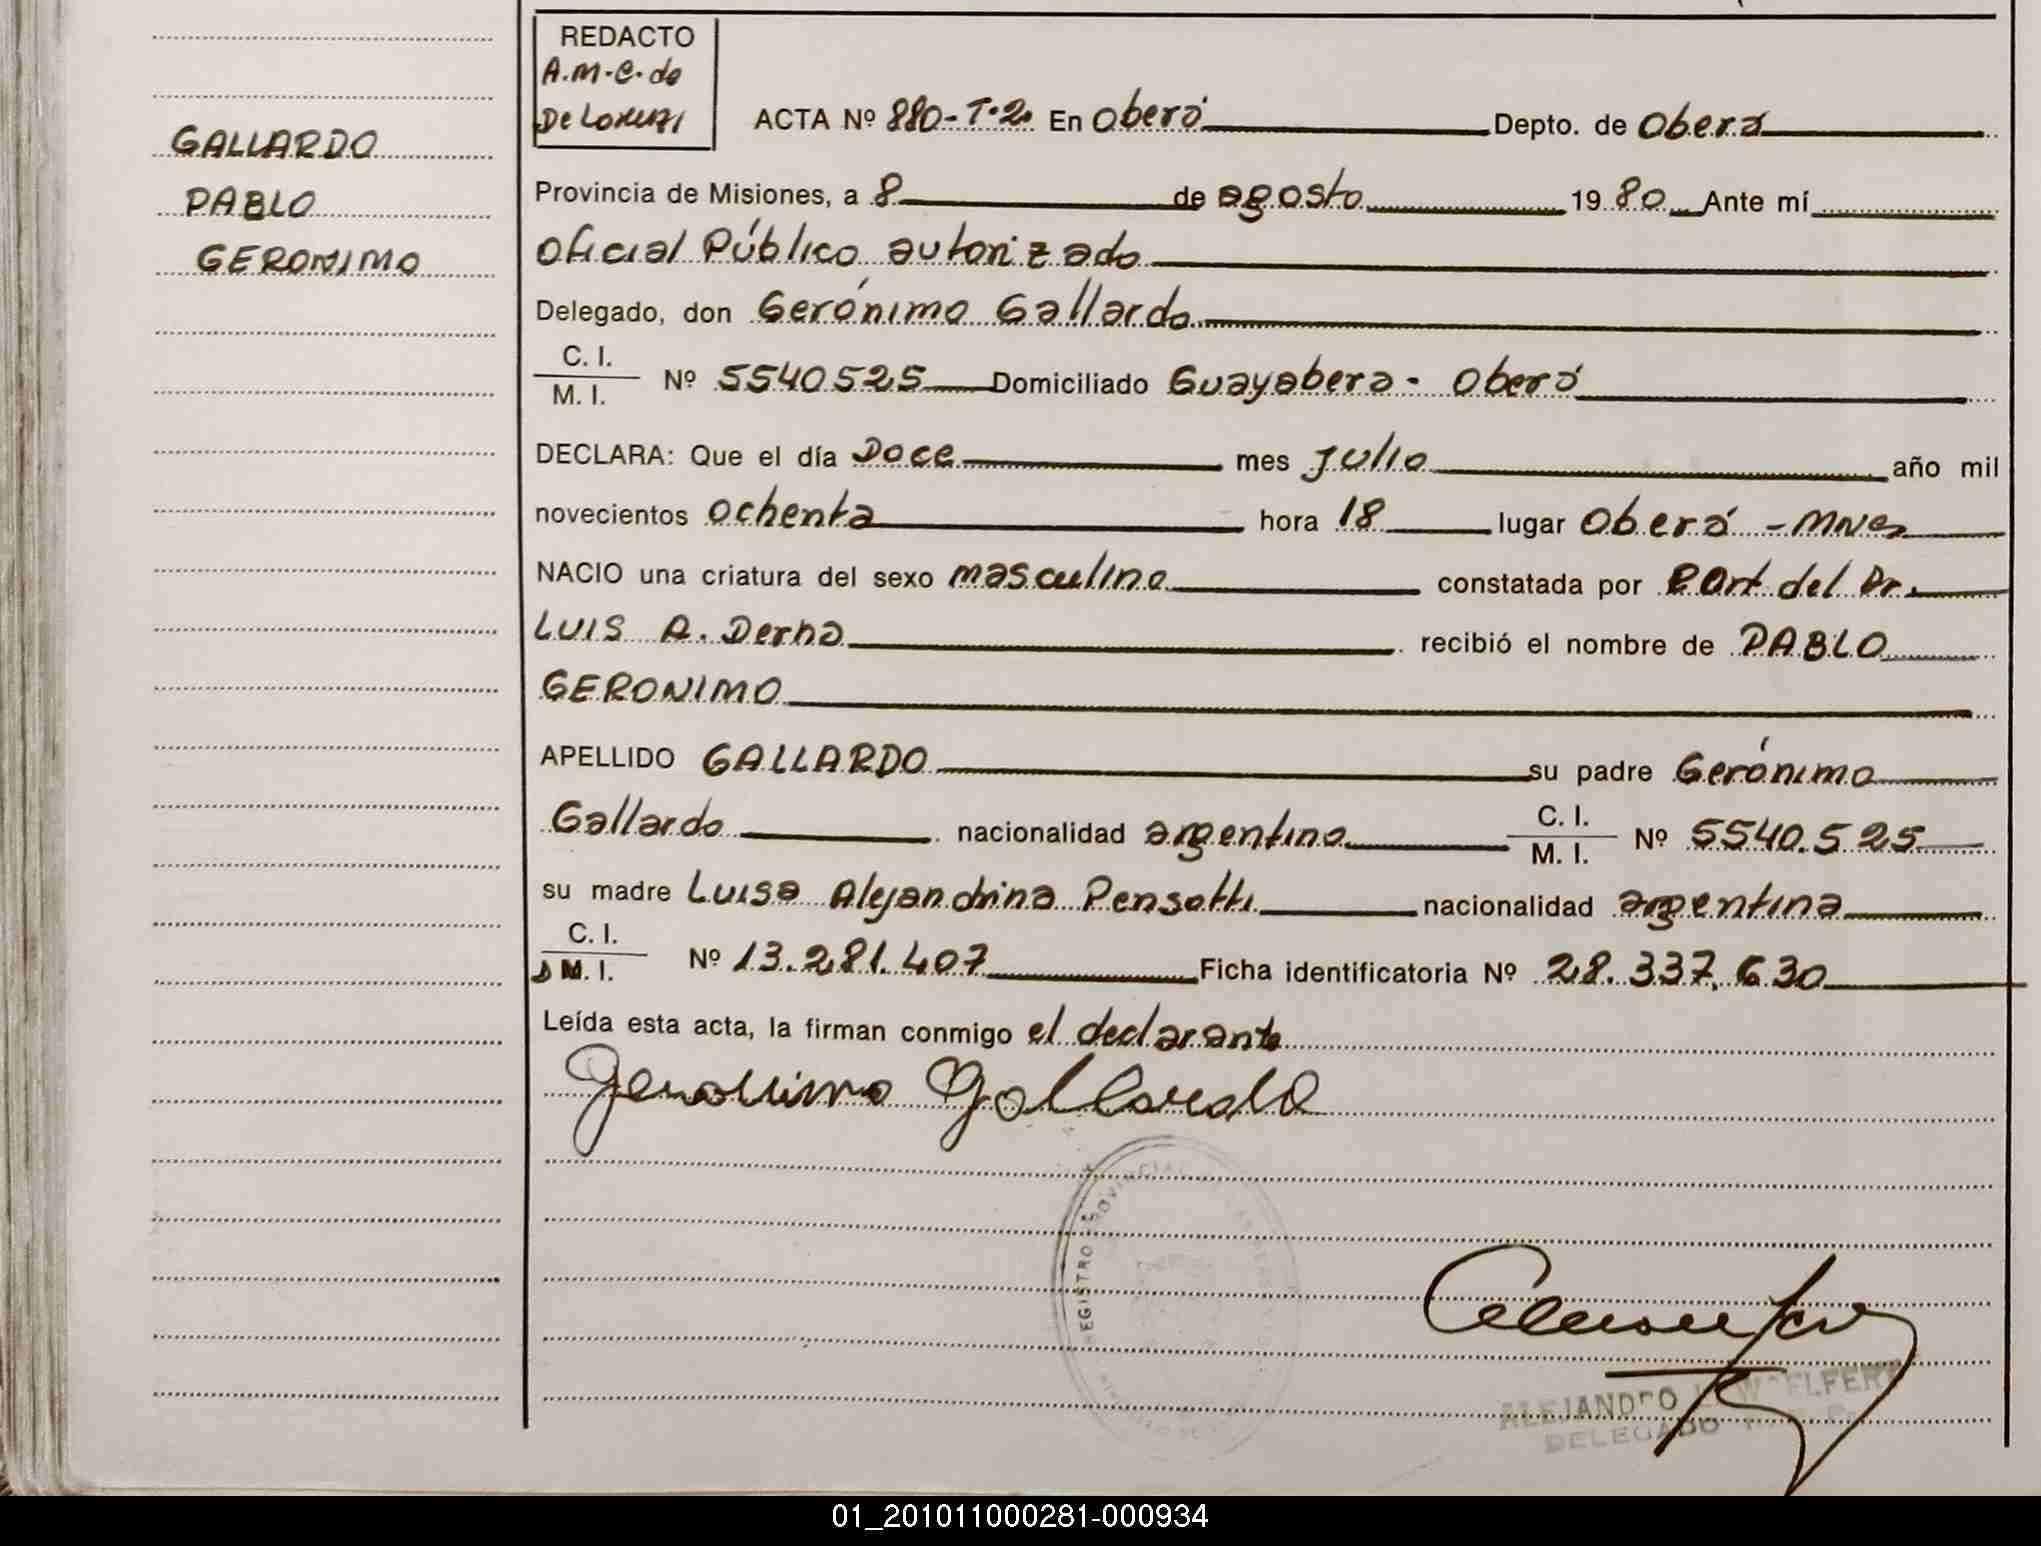 GALLARDO
PABLO
GERONIMO
REDACTO
A.M.C. de
De Lorenzi
ACTA Nº 880-T.2. En Oberá Depto. de Oberá
Provincia de Misiones, a 8 de agosto 1980 Ante mí
Oficial Público autorizado
Delegado, don Gerónimo Gallardo
C. I.
M. I.
Nº 5540525 Domiciliado Guayabera - Oberá
DECLARA: Que el día Doce mes julio año mil
novecientos ochenta hora 18 lugar Oberá - Mnes
NACIO una criatura del sexo masculino constatada por Part del Dr.
LUIS A. Derna recibió el nombre de PABLO
GERONIMO
APELLIDO GALLARDO su padre Gerónimo
Gallardo nacionalidad argentina C. I.
M. I.
Nº 5540.525
su madre Luisa Alejandrina Pensotti nacionalidad argentina
C. I.
D M. I.
Nº 13.281.407 Ficha identificatoria Nº 28.337.630
Leída esta acta, la firman conmigo el declarante
Geronimo Gallardo
REGISTRO PROVINCIAL
ALEJANDRO
DELEGADO
01_201011000281-000934